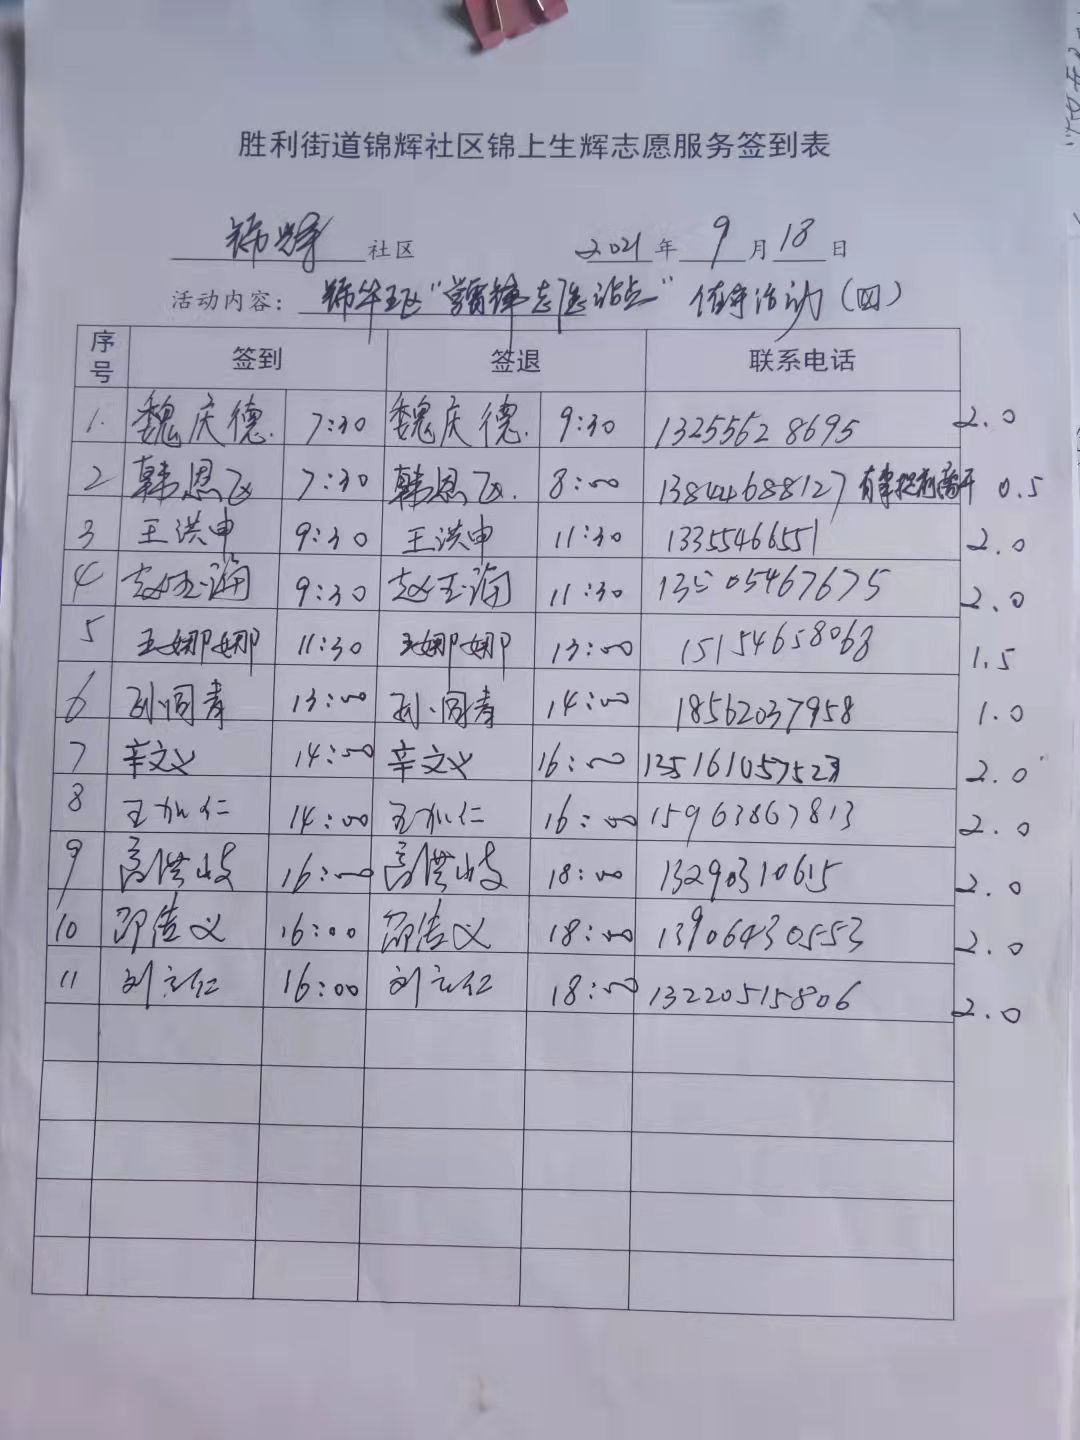 胜利街道锦辉社区锦上生辉志愿服务签到表
锦辉 社区 2021 年 9 月 18 日
活动内容: 锦华社区"学雷锋志愿站点"值守活动(四)
序号 签到 签退 联系电话
1. 魏庆德. 7:30 魏庆德. 9:30 13255628695 2.0
2 韩恩飞 7:30 韩恩飞. 8:00 13844688127 有事提前离开 0.5
3 王洪申 9:30 王洪申 11:30 13355466551 2.0
4 赵玉 9:30 赵玉 11:30 13505467675 2.0
5 王娜娜 11:30 王娜娜 13:00 15154658068 1.5
6 孙 青 13:00 孙 青 14:00 18562037958 1.0
7 辛文义 14:00 辛文义 16:00 2.0
8 王加仁 14:00 王加仁 16:00 15963867813 2.0
9 高洪岐 16:00 高洪岐 18:00 13290310615 2.0
10 邵传义 16:00 邵传义 18:00 13906430553 2.0
11 刘立仁 16:00 刘立仁 18:00 13220515806 2.0